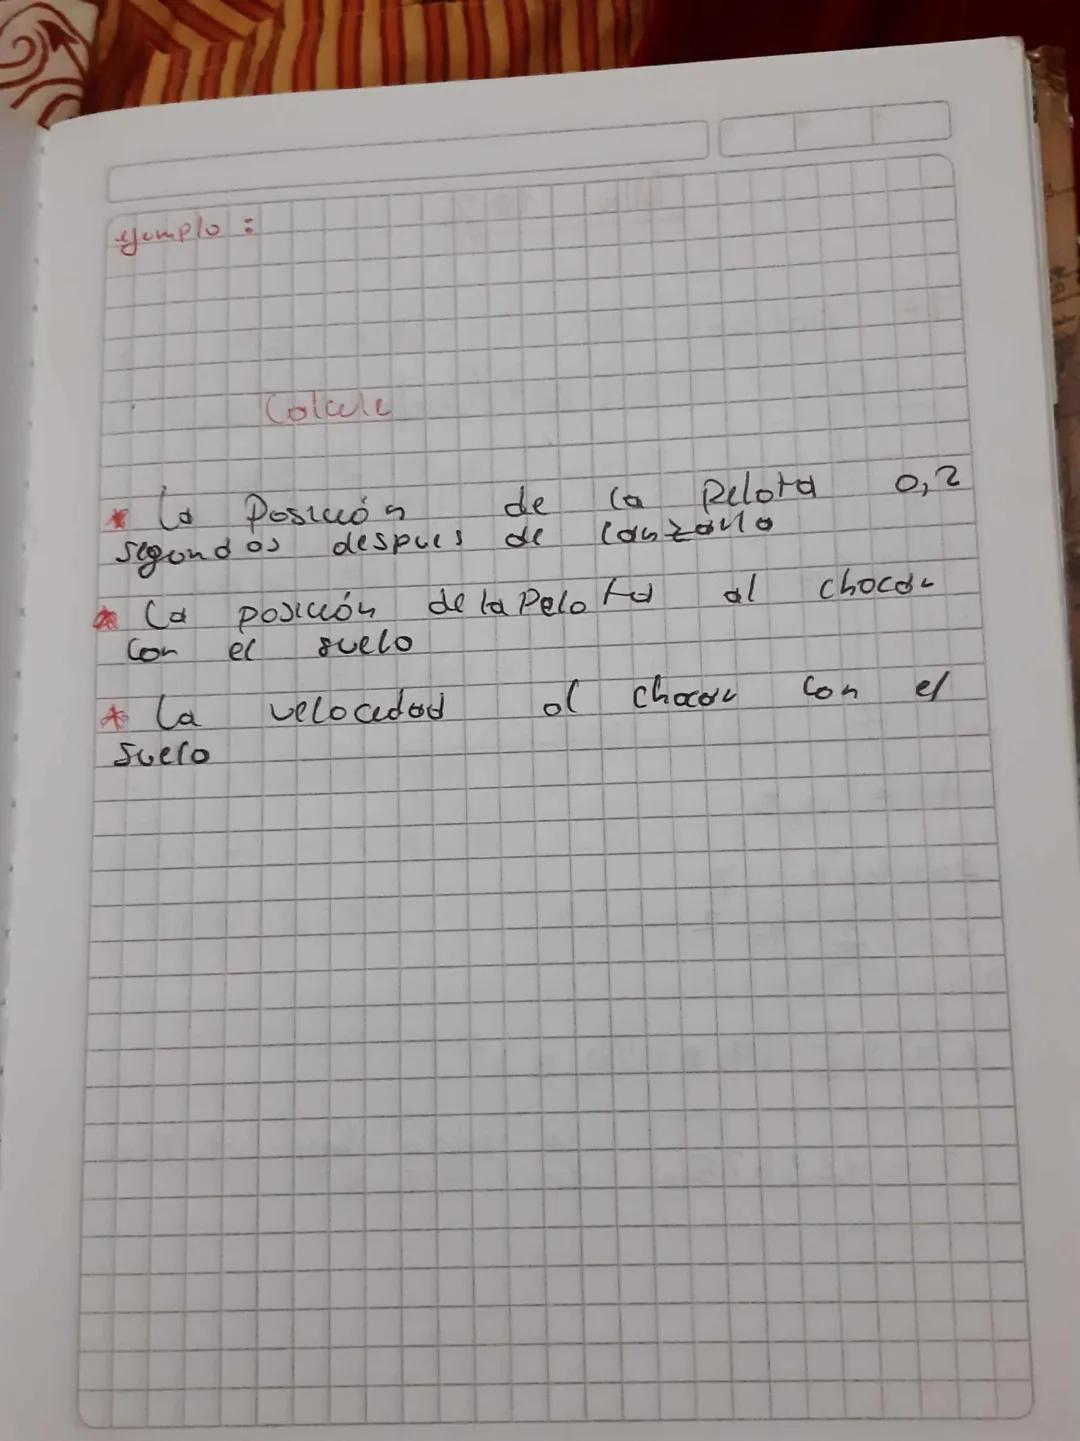 ejemplo :
Calcule
* La Posición de la Pelota 0,2
segundos despues de lanzarlo
* La posición de la Pelota al chocar
Con el suelo
* La velocidad al chocar con el
suelo